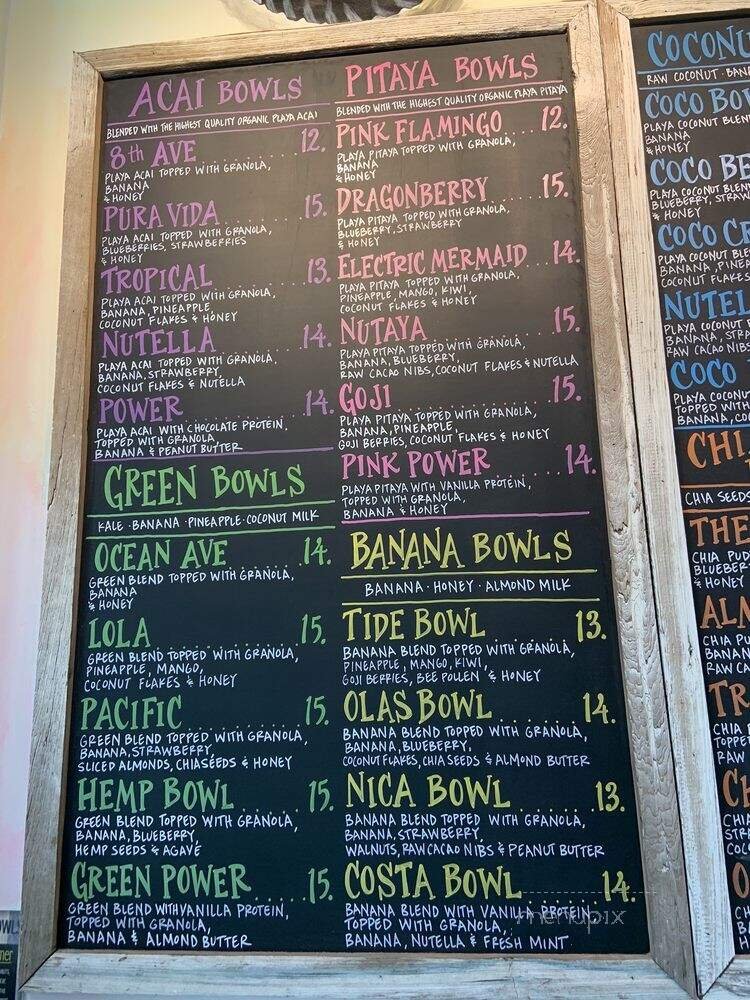 ACAI BOWLS
BLENDED WITH THE HIGHEST QUALITY ORGANIC PLAYA ACAI
8th AVE 12.
PLAYA ACAI TOPPED WITH GRANOLA,
BANANA
& HONEY
PURA VIDA 15.
PLAYA ACAI TOPPED WITH GRANOLA,
BLUEBERRIES, STRAWBERRIES
& HONEY
TROPICAL 13.
PLAYA ACAI TOPPED WITH GRANOLA,
BANANA, PINEAPPLE,
COCONUT FLAKES & HONEY
NUTELLA 14.
PLAYA ACAI TOPPED WITH GRANOLA,
BANANA, STRAWBERRY,
COCONUT FLAKES & NUTELLA
POWER 14.
PLAYA ACAI WITH CHOCOLATE PROTEIN,
TOPPED WITH GRANOLA,
BANANA & PEANUT BUTTER
GREEN BOWLS
KALE · BANANA · PINEAPPLE · COCONUT MILK
OCEAN AVE 14.
GREEN BLEND TOPPED WITH GRANOLA,
BANANA
& HONEY
LOLA 15.
GREEN BLEND TOPPED WITH GRANOLA,
PINEAPPLE, MANGO,
COCONUT FLAKES & HONEY
PACIFIC 15.
GREEN BLEND TOPPED WITH GRANOLA,
BANANA, STRAWBERRY,
SLICED ALMONDS, CHIA SEEDS & HONEY
HEMP BOWL 15.
GREEN BLEND TOPPED WITH GRANOLA,
BANANA, BLUEBERRY,
HEMP SEEDS & AGAVE
GREEN POWER 15.
GREEN BLEND WITH VANILLA PROTEIN,
TOPPED WITH GRANOLA,
BANANA & ALMOND BUTTER
PITAYA BOWLS
BLENDED WITH THE HIGHEST QUALITY ORGANIC PLAYA PITAYA
PINK FLAMINGO 12.
PLAYA PITAYA TOPPED WITH GRANOLA,
BANANA
& HONEY
DRAGONBERRY 15.
PLAYA PITAYA TOPPED WITH GRANOLA,
BLUEBERRY, STRAWBERRY
& HONEY
ELECTRIC MERMAID 14.
PLAYA PITAYA TOPPED WITH GRANOLA,
PINEAPPLE, MANGO, KIWI,
COCONUT FLAKES & HONEY
NUTAYA 15.
PLAYA PITAYA TOPPED WITH GRANOLA,
BANANA, BLUEBERRY,
RAW CACAO NIBS, COCONUT FLAKES & NUTELLA
GOJI 15.
PLAYA PITAYA TOPPED WITH GRANOLA,
BANANA, PINEAPPLE,
GOJI BERRIES, COCONUT FLAKES & HONEY
PINK POWER 14.
PLAYA PITAYA WITH VANILLA PROTEIN,
TOPPED WITH GRANOLA,
BANANA & HONEY
BANANA BOWLS
BANANA · HONEY · ALMOND MILK
TIDE BOWL 13.
BANANA BLEND TOPPED WITH GRANOLA,
PINEAPPLE, MANGO, KIWI,
GOJI BERRIES, BEE POLLEN & HONEY
OLAS BOWL 14.
BANANA BLEND TOPPED WITH GRANOLA,
BANANA, BLUEBERRY,
COCONUT FLAKES, CHIA SEEDS & ALMOND BUTTER
NICA BOWL 13.
BANANA BLEND TOPPED WITH GRANOLA,
BANANA, STRAWBERRY,
WALNUTS, RAW CACAO NIBS & PEANUT BUTTER
COSTA BOWL 14.
BANANA BLEND WITH VANILLA PROTEIN,
TOPPED WITH GRANOLA,
BANANA, NUTELLA & FRESH MINT
menupix
RAW COCONUT · BAN
COCO
PLAYA COCONUT BLEN
BANANA
& HONEY
COCO BE
PLAYA COCONUT BLEN
BLUEBERRY, STRAW
& HONEY
COCO C
PLAYA COCONUT BLE
BANANA, PINE
COCONUT FLAKES
NUTEL
PLAYA COCONUT
BANANA, STR
RAW CACAO NIBS
COCO
PLAYA COCONUT
TOPPED WITH
BANANA, CO
CHI
CHIA SEEDS
THE
CHIA PUD
BLUEBER
& HONEY